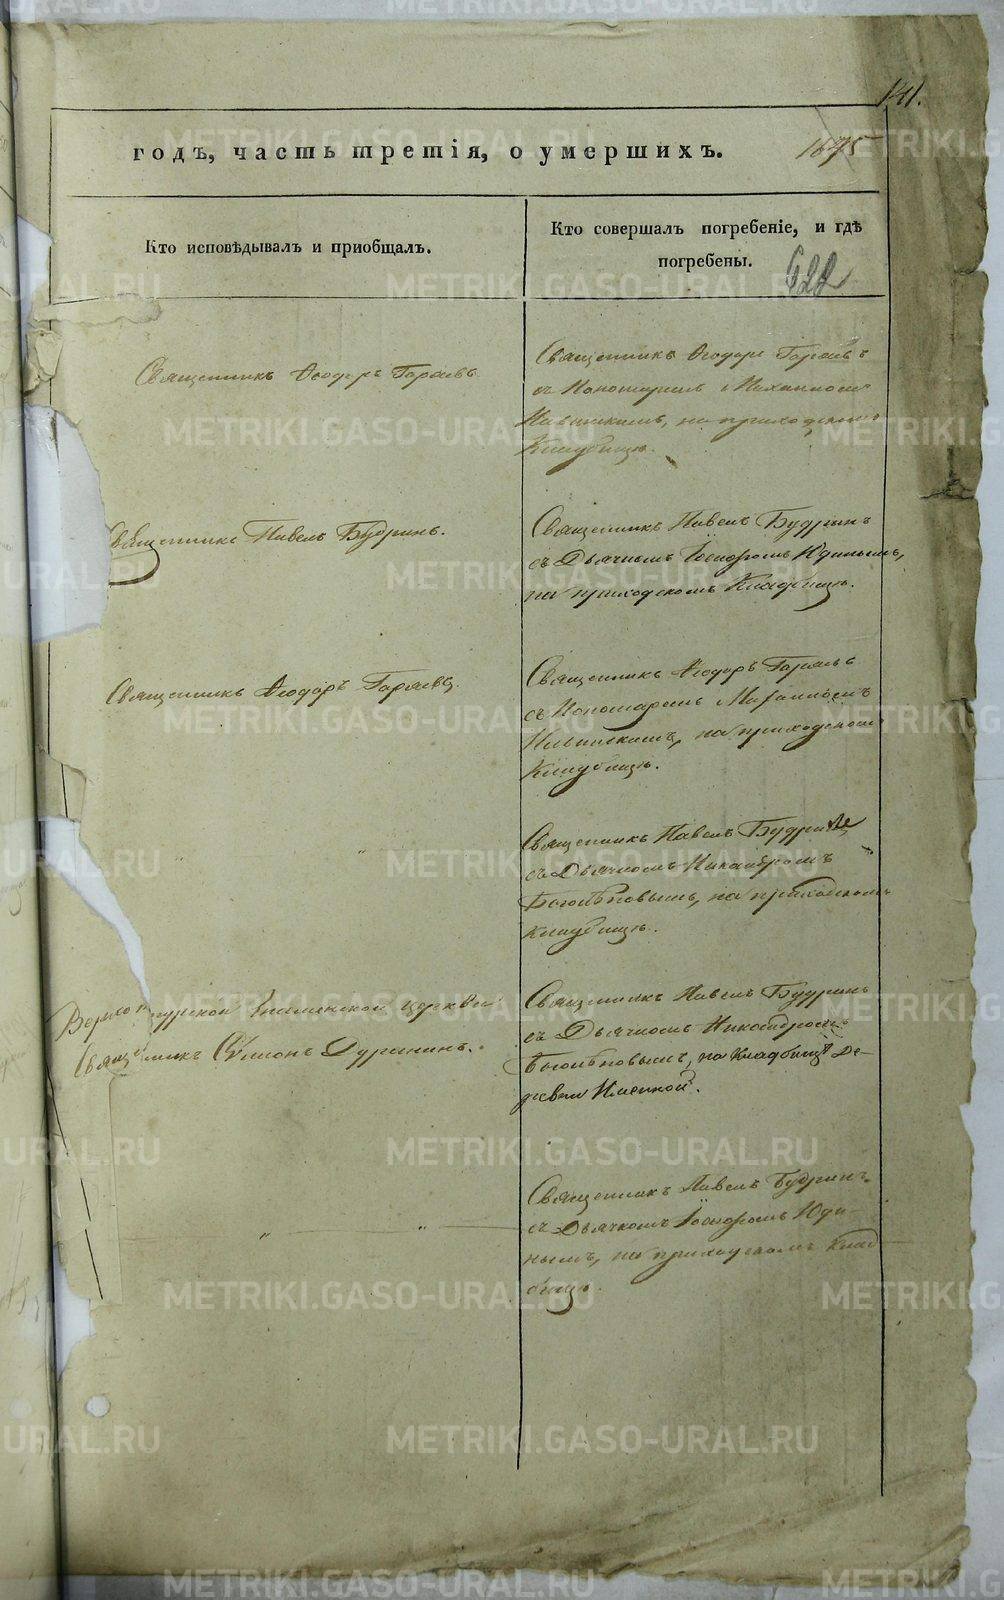 141.
годъ, часть третія, о умершихъ.
1675
Кто исповѣдывалъ и приобщалъ.
Кто совершалъ погребеніе, и гдѣ
погребены.
422
Священникъ Ѳеодоръ Горяевъ
Священникъ Ѳеодоръ Горяевъ
съ Пономаремъ Михаиломъ
на приходскомъ
Кладбищѣ.
Священникъ Павелъ Будринъ.
Священникъ Павелъ Будринъ
съ Дьячкомъ Іосифомъ Юдинымъ,
на приходскомъ Кладбищѣ.
Священникъ Ѳеодоръ Горяевъ.
Священникъ Ѳеодоръ Горяевъ
съ Пономаремъ Михаиломъ
на приходскомъ
Кладбищѣ.
Священникъ Павелъ Будринъ
съ Дьячкомъ Никандромъ
Боголѣповымъ, на приходскомъ
кладбищѣ.
церкви
Священникъ Симеонъ Дурнинъ.
Священникъ Павелъ Будринъ
съ Дьячкомъ Никандромъ
Боголѣповымъ, на Кладбищѣ де-
ревни
Священникъ Павелъ Будринъ
съ Дьячкомъ Іосифомъ Юди-
нымъ, на приходскомъ клад
бищѣ.
METRIKI.GASO-URAL.RU